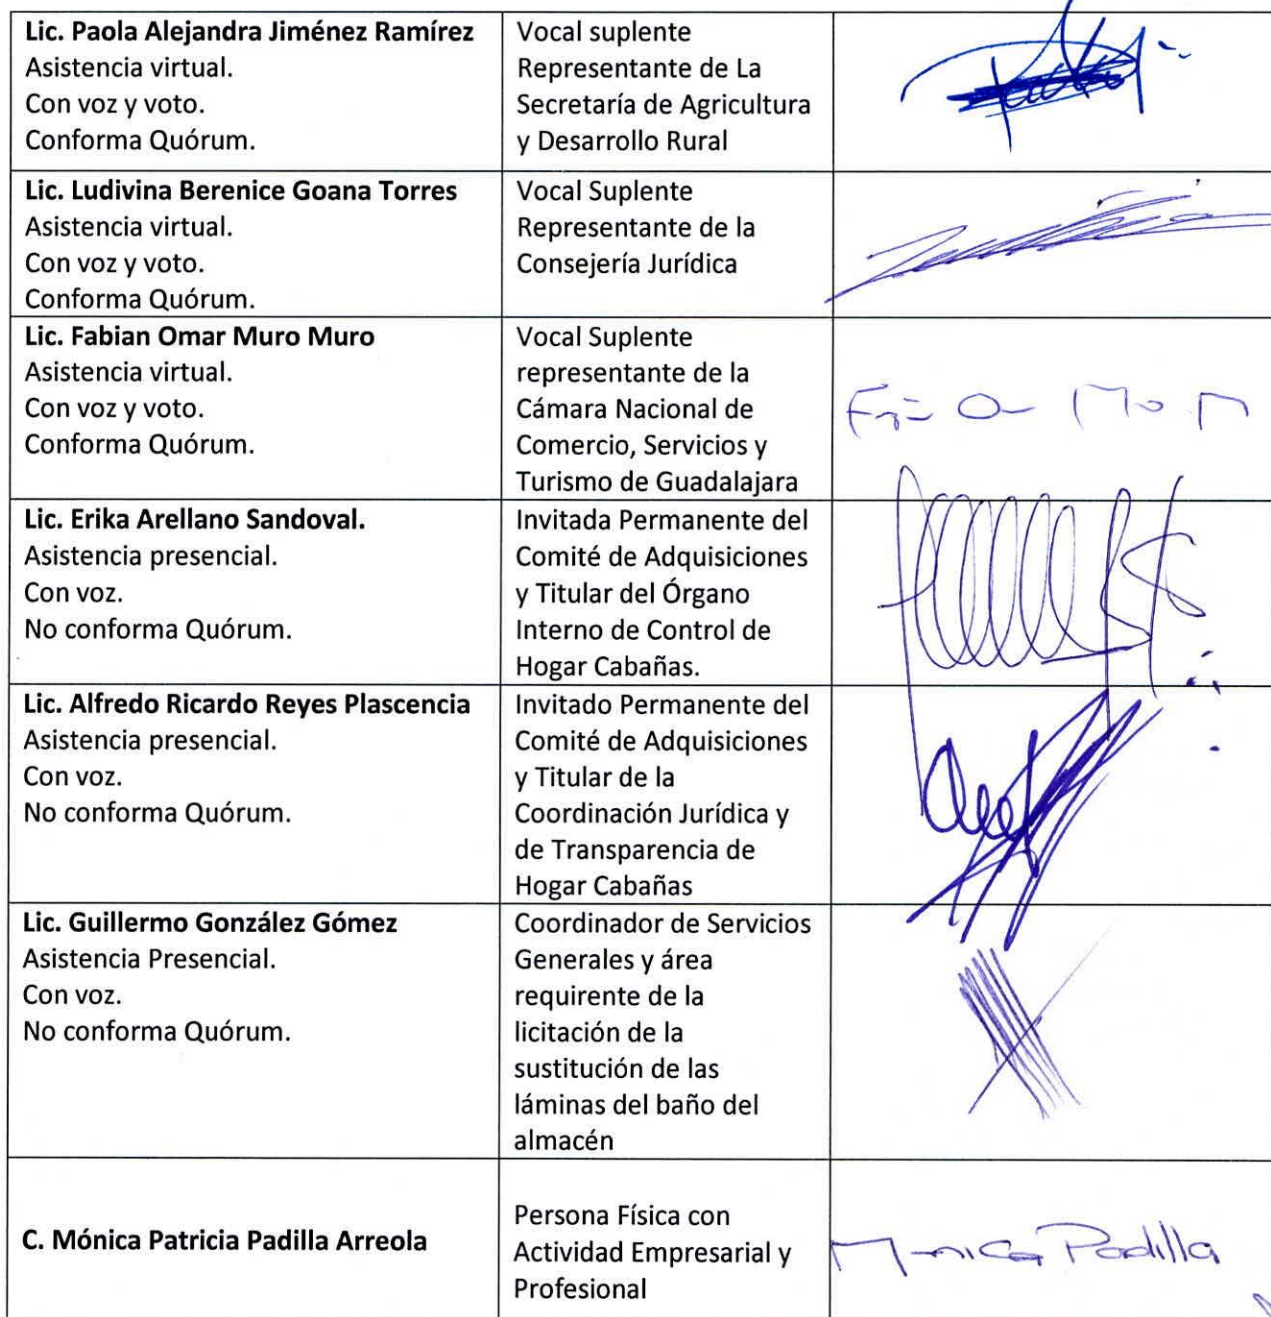 Lic. Paola Alejandra Jiménez Ramírez
Asistencia virtual.
Con voz y voto.
Conforma Quórum.
Vocal suplente
Representante de La
Secretaría de Agricultura
y Desarrollo Rural
Lic. Ludivina Berenice Goana Torres
Asistencia virtual.
Con voz y voto.
Conforma Quórum.
Vocal Suplente
Representante de la
Consejería Jurídica
Lic. Fabian Omar Muro Muro
Asistencia virtual.
Con voz y voto.
Conforma Quórum.
Vocal Suplente
representante de la
Cámara Nacional de
Comercio, Servicios y
Turismo de Guadalajara
Lic. Erika Arellano Sandoval.
Asistencia presencial.
Con voz.
No conforma Quórum.
Invitada Permanente del
Comité de Adquisiciones
y Titular del Órgano
Interno de Control de
Hogar Cabañas.
Lic. Alfredo Ricardo Reyes Plascencia
Asistencia presencial.
Con voz.
No conforma Quórum.
Invitado Permanente del
Comité de Adquisiciones
y Titular de la
Coordinación Jurídica y
de Transparencia de
Hogar Cabañas
Lic. Guillermo González Gómez
Asistencia Presencial.
Con voz.
No conforma Quórum.
Coordinador de Servicios
Generales y área
requirente de la
licitación de la
sustitución de las
láminas del baño del
almacén
C. Mónica Patricia Padilla Arreola
Persona Física con
Actividad Empresarial y
Profesional
Monica Padilla